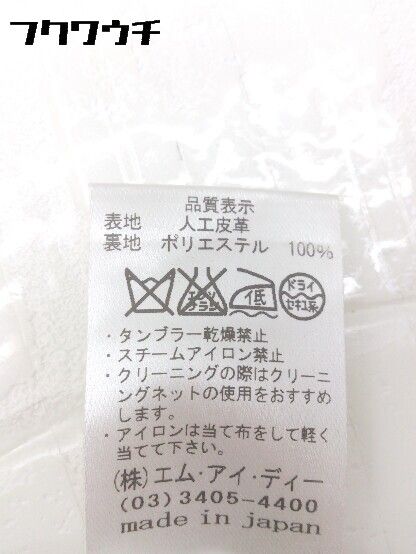 フクワウチ
品質表示
表地 人工皮革
裏地 ポリエステル 100%
エンソ
サラシ
低
ドライ
セキユ系
・タンブラー乾燥禁止
・スチームアイロン禁止
・クリーニングの際はクリーニ
ングネットの使用をおすすめ
します。
・アイロンは当て布をして軽く
当てて下さい。
(株)エム・アイ・ディー
(03)3405-4400
made in japan